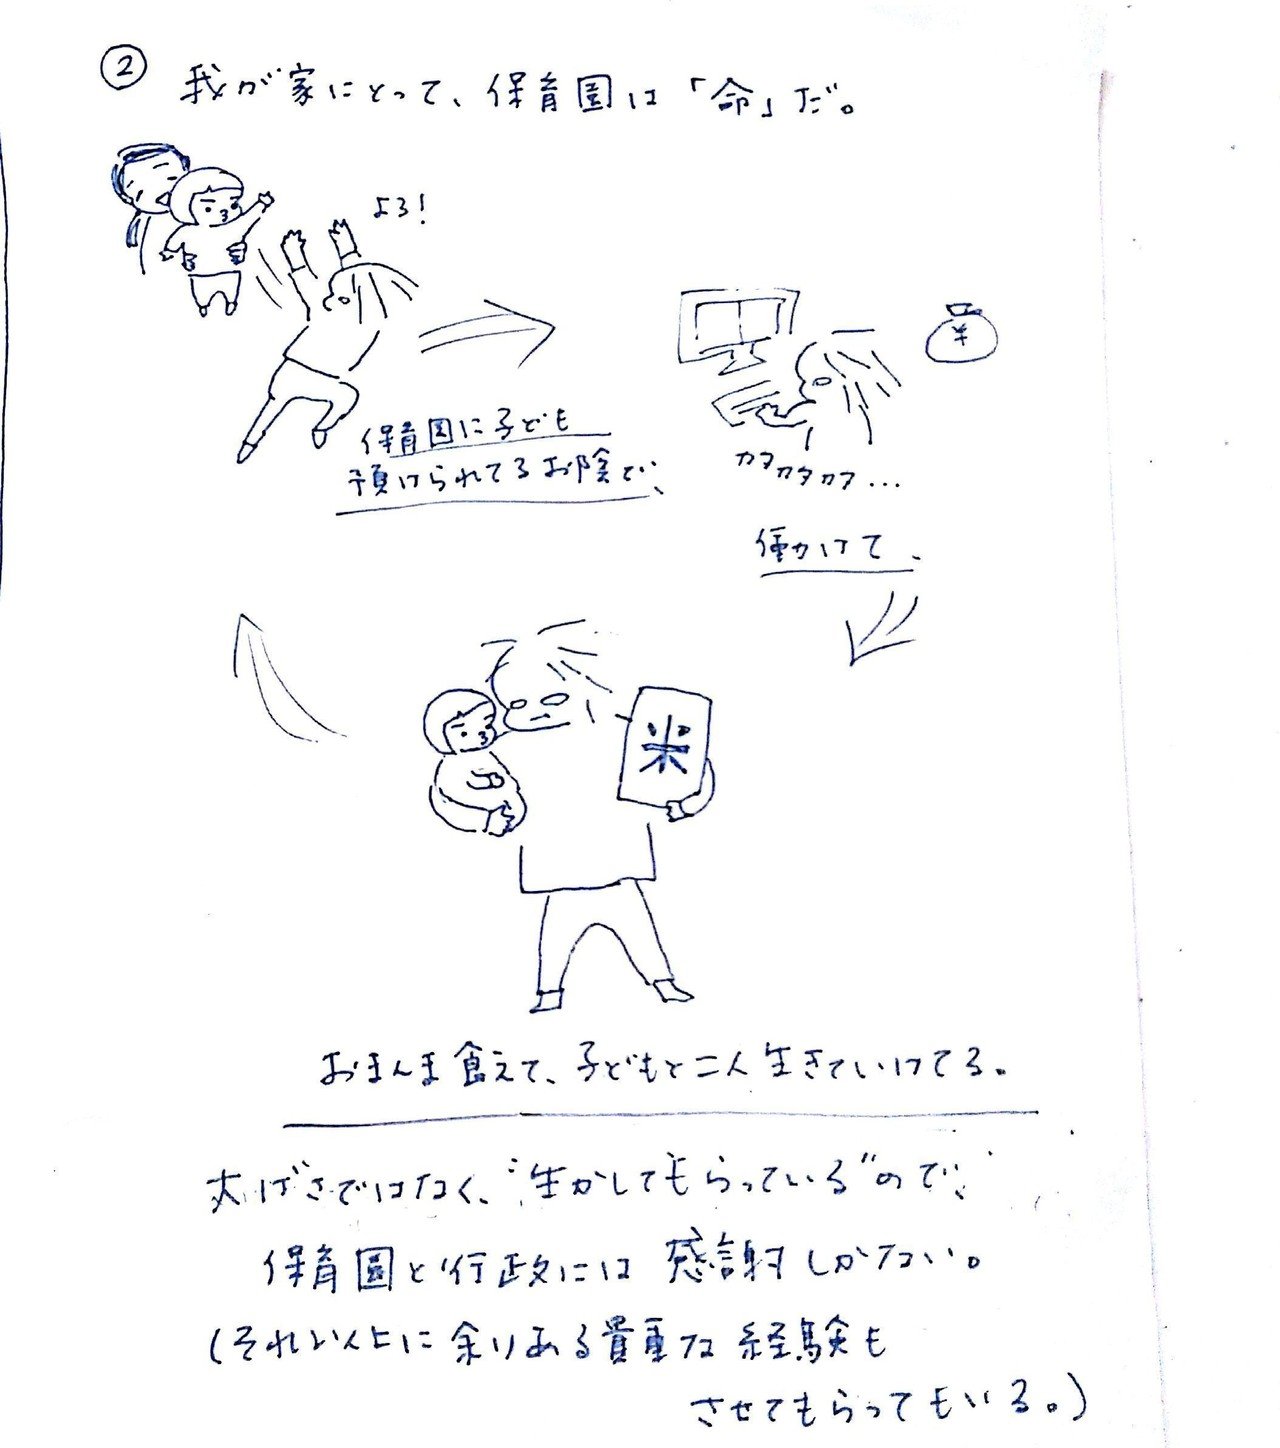 ②
我が家にとって、保育園は「命」だ。
よろ!
¥
保育園に子ども
預けられてるお陰で、
カタカタカタ...
働かけて、
米
おまんま食えて、子どもと二人生きていけてる。
大げさではなく、"生かしてもらっている"ので、
保育園と行政には感謝しかない。
(それ以上に余りある貴重な経験も
させてもらってもいる。)